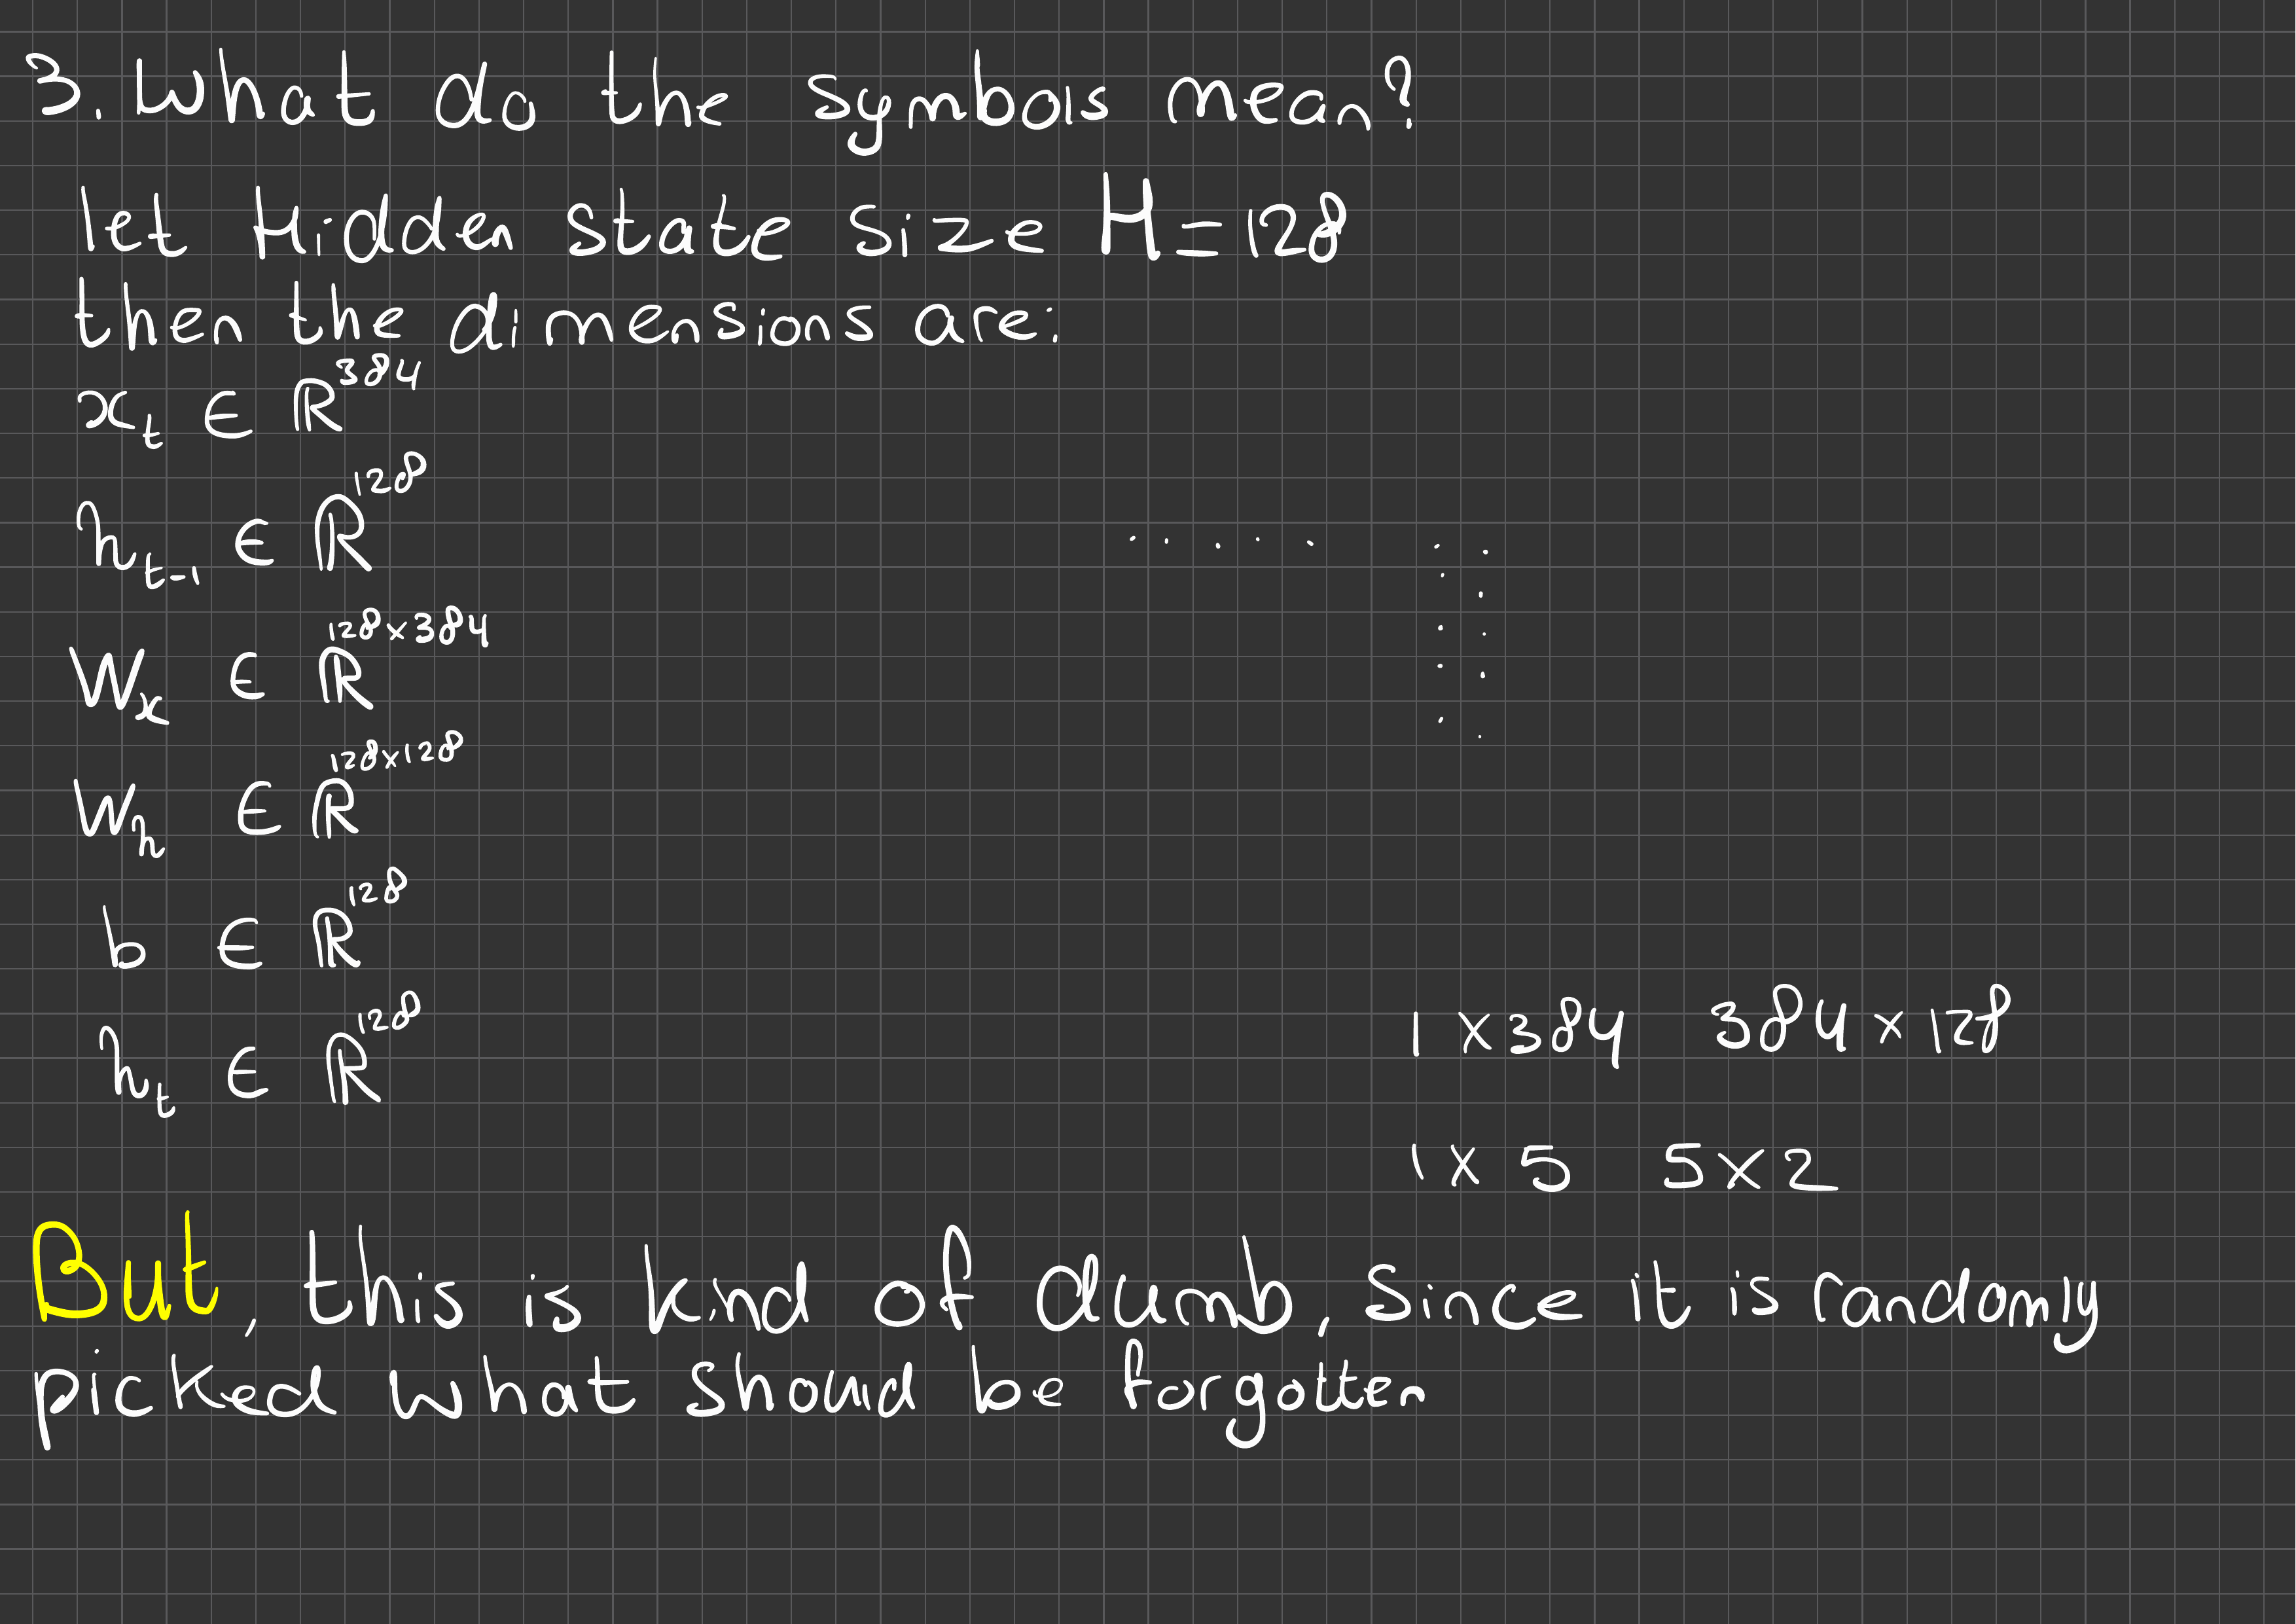 3. What do the symbols mean?
let Hidden state size H = 128
then the dimensions are:
xₜ ∈ ℝ³⁸⁴
hₜ₋₁ ∈ ℝ¹²⁸
Wₓ ∈ ℝ¹²⁸ˣ³⁸⁴
Wₕ ∈ ℝ¹²⁸ˣ¹²⁸
b ∈ ℝ¹²⁸
hₜ ∈ ℝ¹²⁸
1 × 384 384 × 128
1 × 5 5 × 2
But, this is kind of dumb, Since it is randomly
picked what should be forgotten